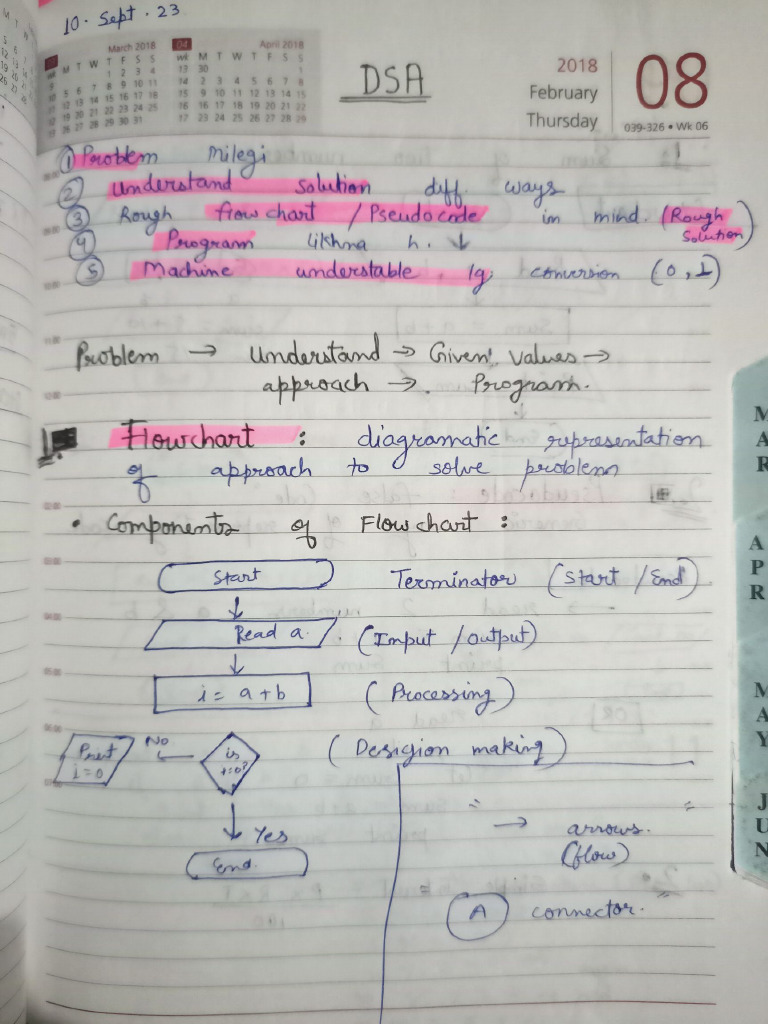 10. Sept. 23
March 2018
April 2018
DSA
2018
February
Thursday
08
039-326 • Wk 06
① Problem milegi
② Understand solution diff. ways
③ Rough flowchart / Pseudocode in mind. (Rough Solution)
④ Program likhna h. ↓
⑤ Machine understable lg. conversion (0,1)
Problem → Understand → Given values →
approach → Program.
Flowchart : diagramatic representation
of approach to solve problem
• Components of Flowchart :
Start Terminator (Start / End)
Read a. (Input / output)
i = a + b (Processing)
Print i=0 No is i=0? (Desigion making)
Yes
End.
→ arrows.
(flow)
A connector.
M
A
R
A
P
R
M
A
Y
J
U
N